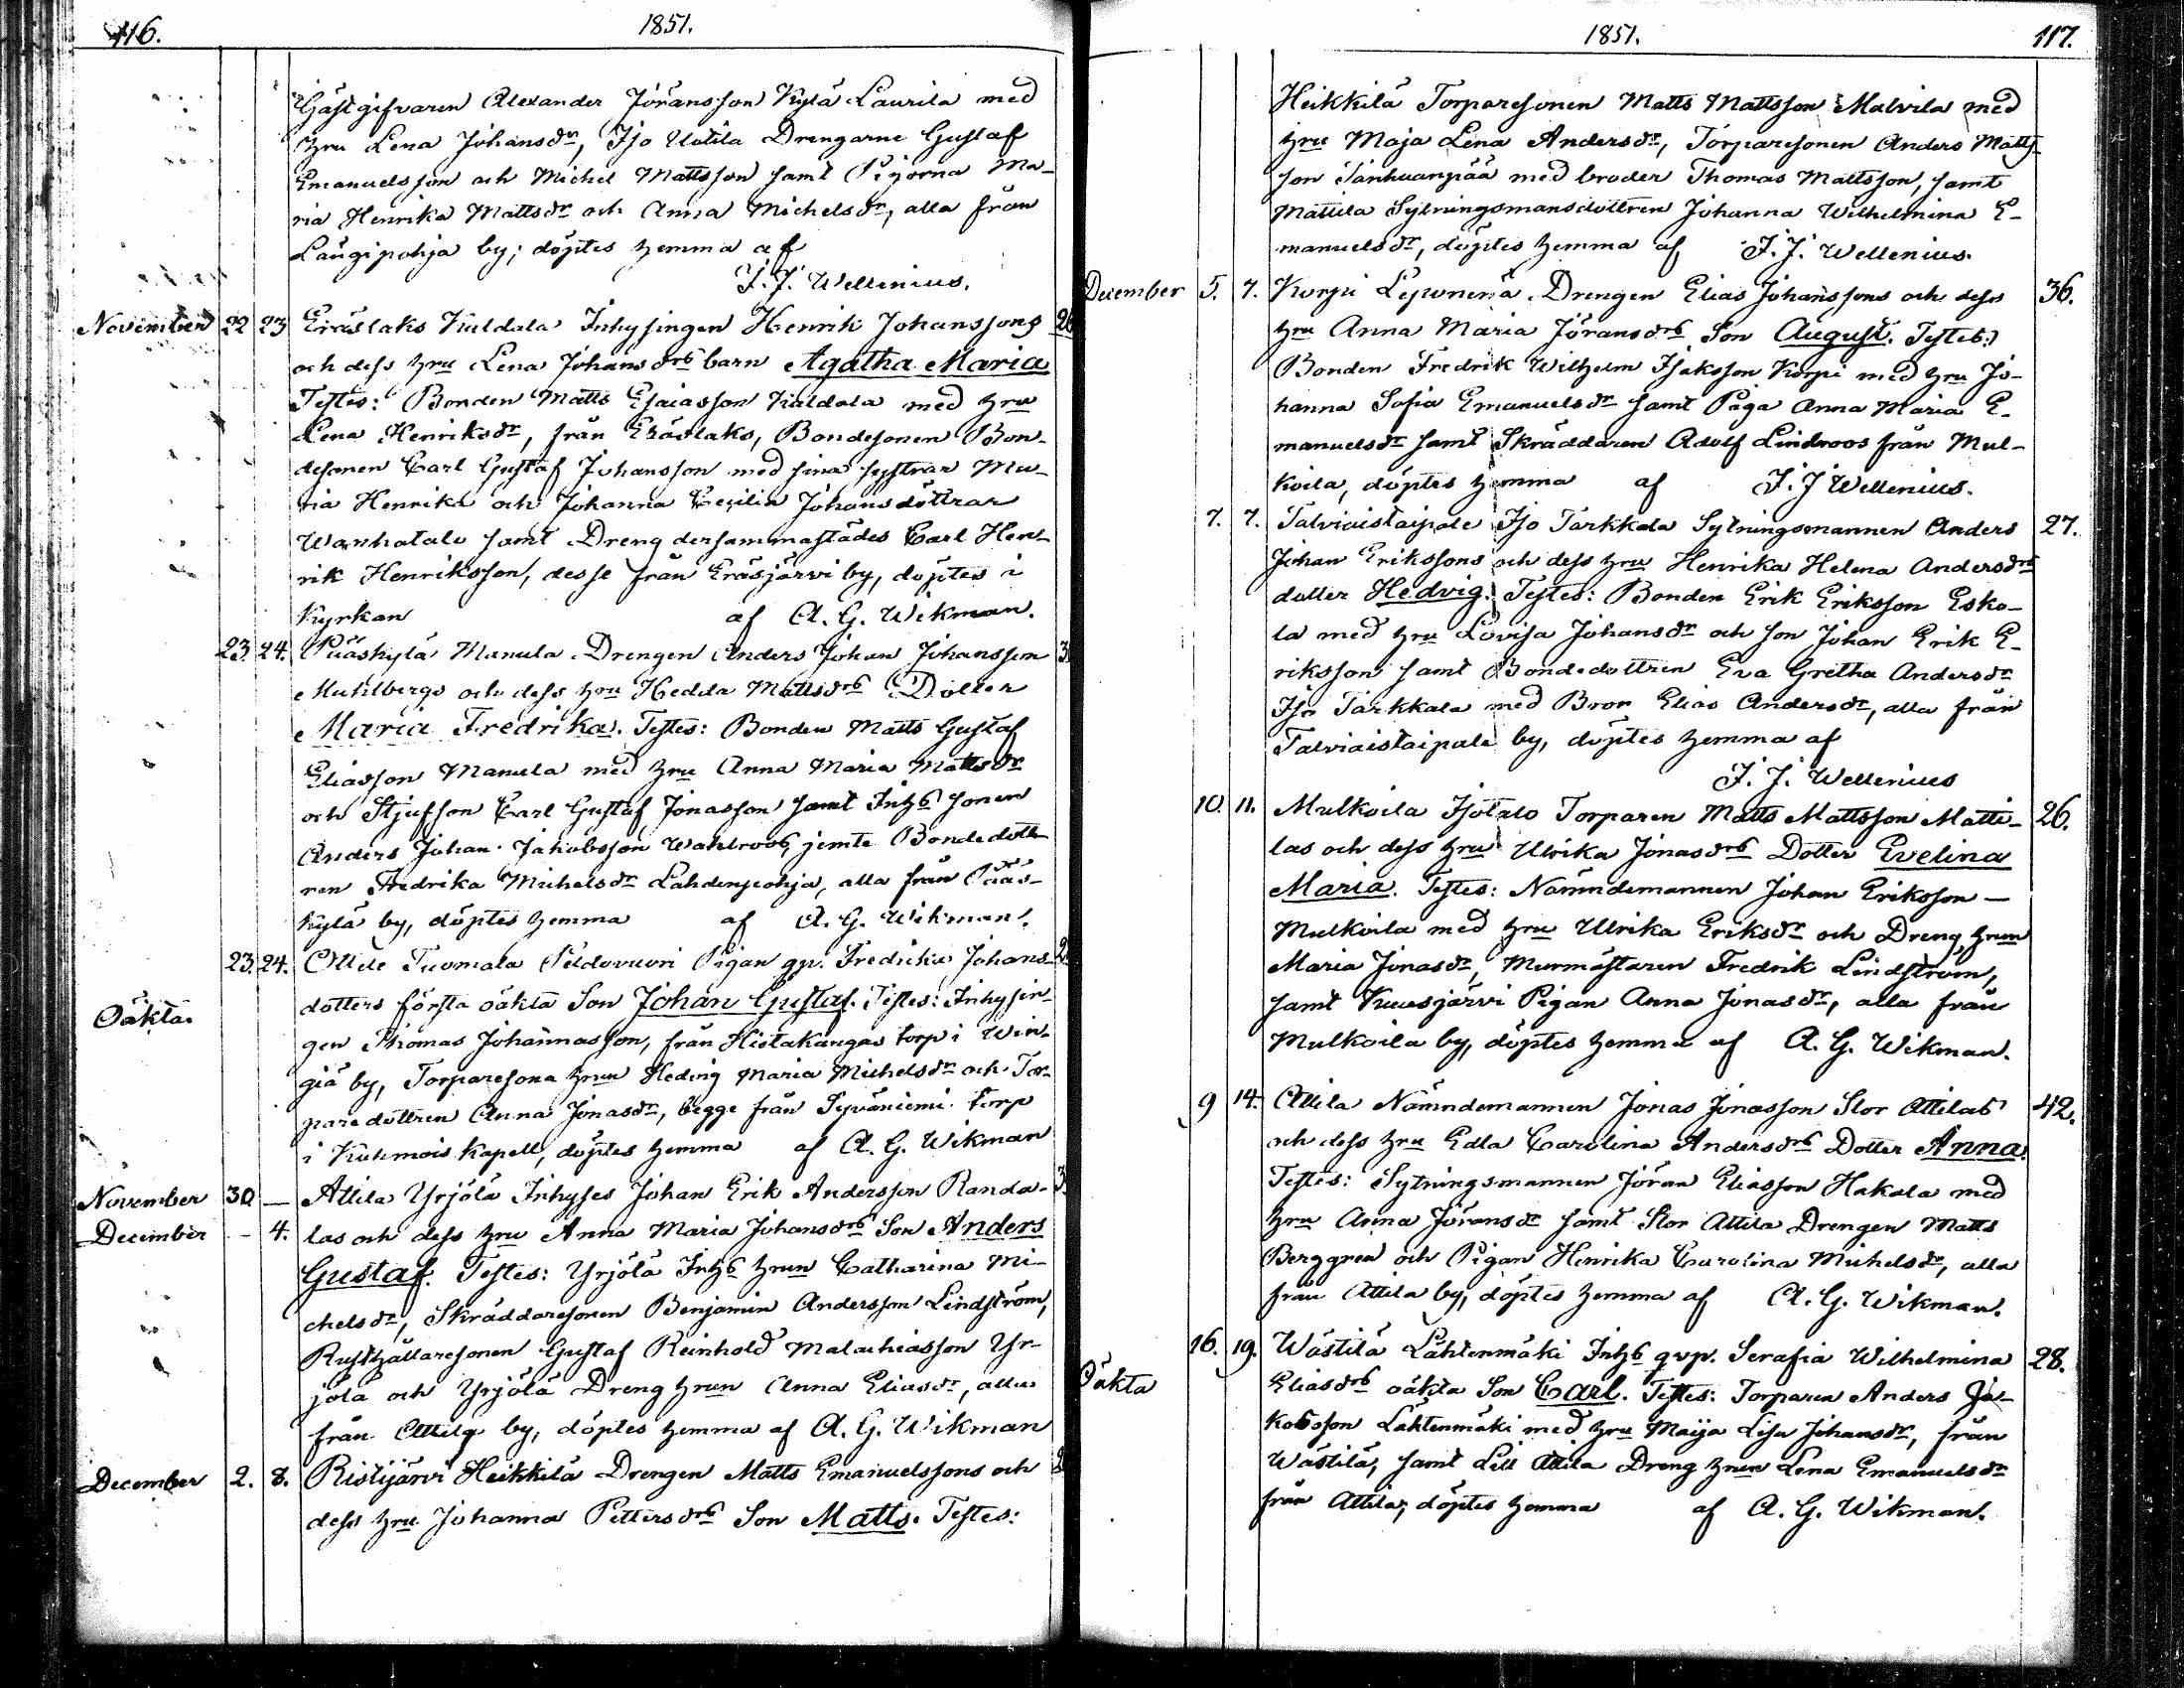 116.
1851.
Gästgifvaren Alexander Jöransson Kylä Laurila med
hru Lena Johansdr, Iso Uotila Drengarne Gustaf
Emanuelsson och Michel Mattsson samt Pigorna Ma-
ria Henrika Mattsdr och Anna Michelsdr, alla från
Längipohja by; döptes hemma af
J. J. Wellenius.
November 22 23 Eräslaks Kaldala Inhysingen Henrik Johanssons
och dess hru Lena Johansdrs barn Agatha Maria
Testes: Bonden Matts Esaiasson Kaldala med hru
Lena Henriksdr, från Eräslaks, Bondesonen Bon-
desonen Carl Gustaf Johansson med sina systrar Ma-
ria Henrika och Johanna Cecilia Johansdöttrar
Wanhatalo samt Dreng dersammastädes Carl Hen-
rik Henriksson, desse från Eräsjärvi by, döptes i
Kyrkan af A. G. Wikman.
23. 24. Pääskylä Manula Drengen Anders Johan Johansson
Muhlbergs och dess hru Hedda Mattsdrs Dotter
Maria Fredrika. Testes: Bonden Matts Gustaf
Eliasson Manula med hru Anna Maria Mattsdr
och Stjufson Carl Gustaf Jonasson samt Inhs sonen
Anders Johan Jakobsson Wahlroos, jemte Bondedott-
ren Fredrika Michelsdr Lahdenpohja, alla från Pääs-
kylä by, döptes hemma af A. G. Wikman.
23. 24. Ollele Tuomala Peldovuori Pigan qp. Fredrika Johans-
Oäkta. dotters första oäkta Son Johan Gustaf. Testes: Inhysin-
gen Thomas Johannasson, från Hietakangas torp i Win-
giä by, Torparesona hrun Hedvig Maria Michelsdr och Tor-
paredottren Anna Jonasdr, begge från Syväniemi torp
i Kuhmois Kapell, döptes hemma af A. G. Wikman
November 30 — Attila Yrjölä Inhyses Johan Erik Andersson Randa-
December - 4. las och dess hru Anna Maria Johansdrs Son Anders
Gustaf. Testes: Yrjölä Inhs hrun Catharina Mi-
chelsdr, Skräddaresonen Benjamin Andersson Lindström,
Rusthållaresonen Gustaf Reinhold Malachiasson Yr-
jölä och Yrjölä Dreng hrun Anna Eliasdr, alla
från Attila by, döptes hemma af A. G. Wikman
December 2. 8. Ristijärvi Heikkilä Drengen Matts Emanuelssons och
dess hru Johanna Pettersdrs Son Matts. Testes:
1851.
117.
Heikkilä Torparesonen Matts Mattsson Malvila med
hru Maja Lena Andersdr, Torparesonen Anders Matts-
son Tanhuanpää med broder Thomas Mattsson, samt
Mattila Sytningsmansdottren Johanna Wilhelmina E-
manuelsdr, döptes hemma af J. J. Wellenius.
December 5. 7. Korpi Leponenä Drengen Elias Johanssons och dess 36.
hru Anna Maria Jöransdrs Son August. Testes:
Bonden Fredrik Wilhelm Isaksson Korpi med hru Jo-
hanna Sofia Emanuelsdr samt Piga Anna Maria E-
manuelsdr samt Skräddaren Adolf Lindroos från Mul-
koila, döptes hemma af J. J Wellenius.
7. 7. Talviaistaipale Iso Tarkkala Sytningsmannen Anders 27.
Johan Erikssons och dess hru Henrika Helena Andersdrs
dotter Hedvig. Testes: Bonden Erik Eriksson Esko-
la med hru Lovisa Johansdr och Son Johan Erik E-
riksson samt Bondedottren Eva Gretha Andersdr
Iso Tarkkala med Bror Elias Andersdr, alla från
Talviaistaipale by, döptes hemma af
J. J. Wellenius
10. 11. Mulkoila Isotalo Torparen Matts Mattsson Matti- 26.
las och dess hru Ulrika Jonasdrs Dotter Evelina
Maria. Testes: Nämndemannen Johan Eriksson —
Mulkoila med hru Ulrika Eriksdr och Dreng hrun
Maria Jonasdr, Murmästaren Fredrik Lindström,
samt Kuusjärvi Pigan Anna Jonasdr, alla från
Mulkoila by, döptes hemma af A. G. Wikman.
9 14. Attila Nämndemannen Jonas Jonasson Stor Attilas 42.
och dess hru Edla Carolina Andersdrs Dotter Anna.
Testes: Sytningsmannen Jöran Eliasson Hakala med
hru Anna Jöransdr samt Stor Attila Drengen Matts
Berggren och Pigan Henrika Carolina Michelsdr, alla
från Attila by, döptes hemma af A. G. Wikman.
16. 19. Wästilä Lähtenmäki Inhs qvp. Serafia Wilhelmina 28.
Oäkta Eliasdrs oäkta Son Carl. Testes: Torparen Anders Ja-
kobsson Lähtenmäki med hru Maija Lisa Johansdr, från
Wästilä, samt Lill Attila Dreng hrun Lena Emanuelsdr
från Attila; döptes hemma af A. G. Wikman.